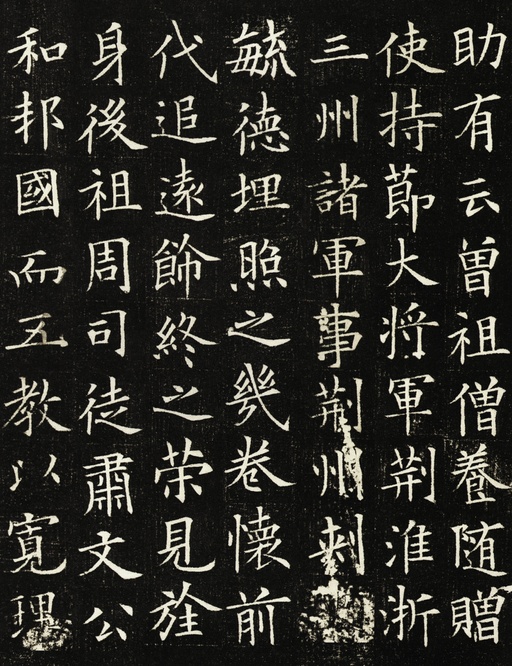 助有云曾祖僧養随贈
使持莭大将軍荆淮浙
三州諸軍事荆州刺
毓德埋照之幾卷懷前
代追遠飾終之荣見旌
身後祖周司徒肅文公
和邦國而五教以寬理